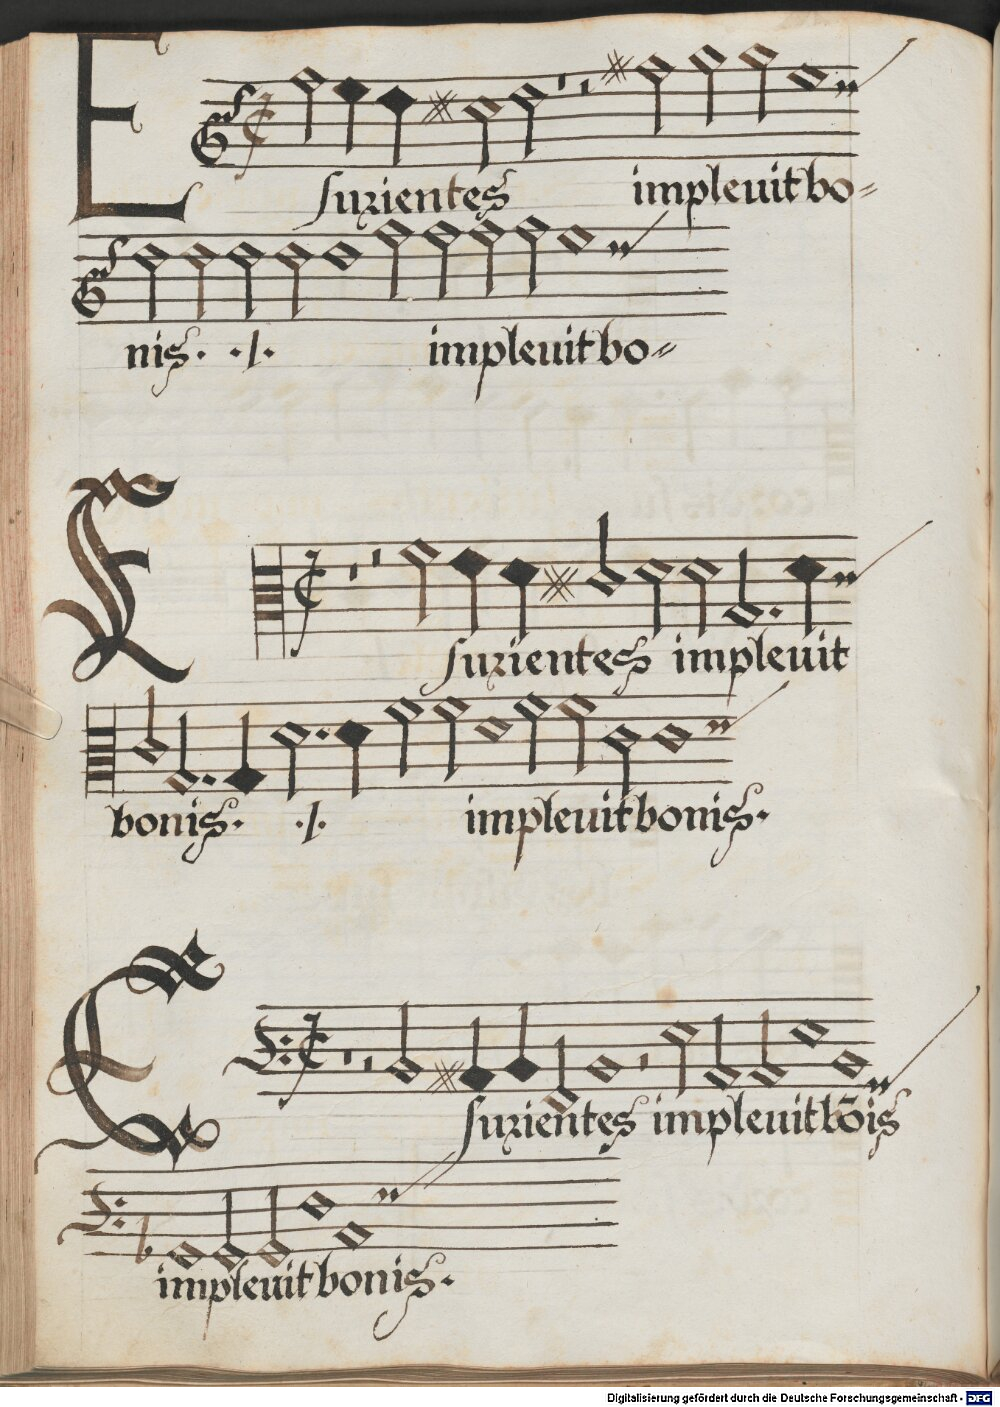 Esurientes impleuit bo=
nis. ./. impleuit bo=
Esurientes impleuit
bonis. ./. impleuit bonis.
Esurientes impleuit bōis
impleuit bonis.
Digitalisierung gefördert durch die Deutsche Forschungsgemeinschaft - DFG